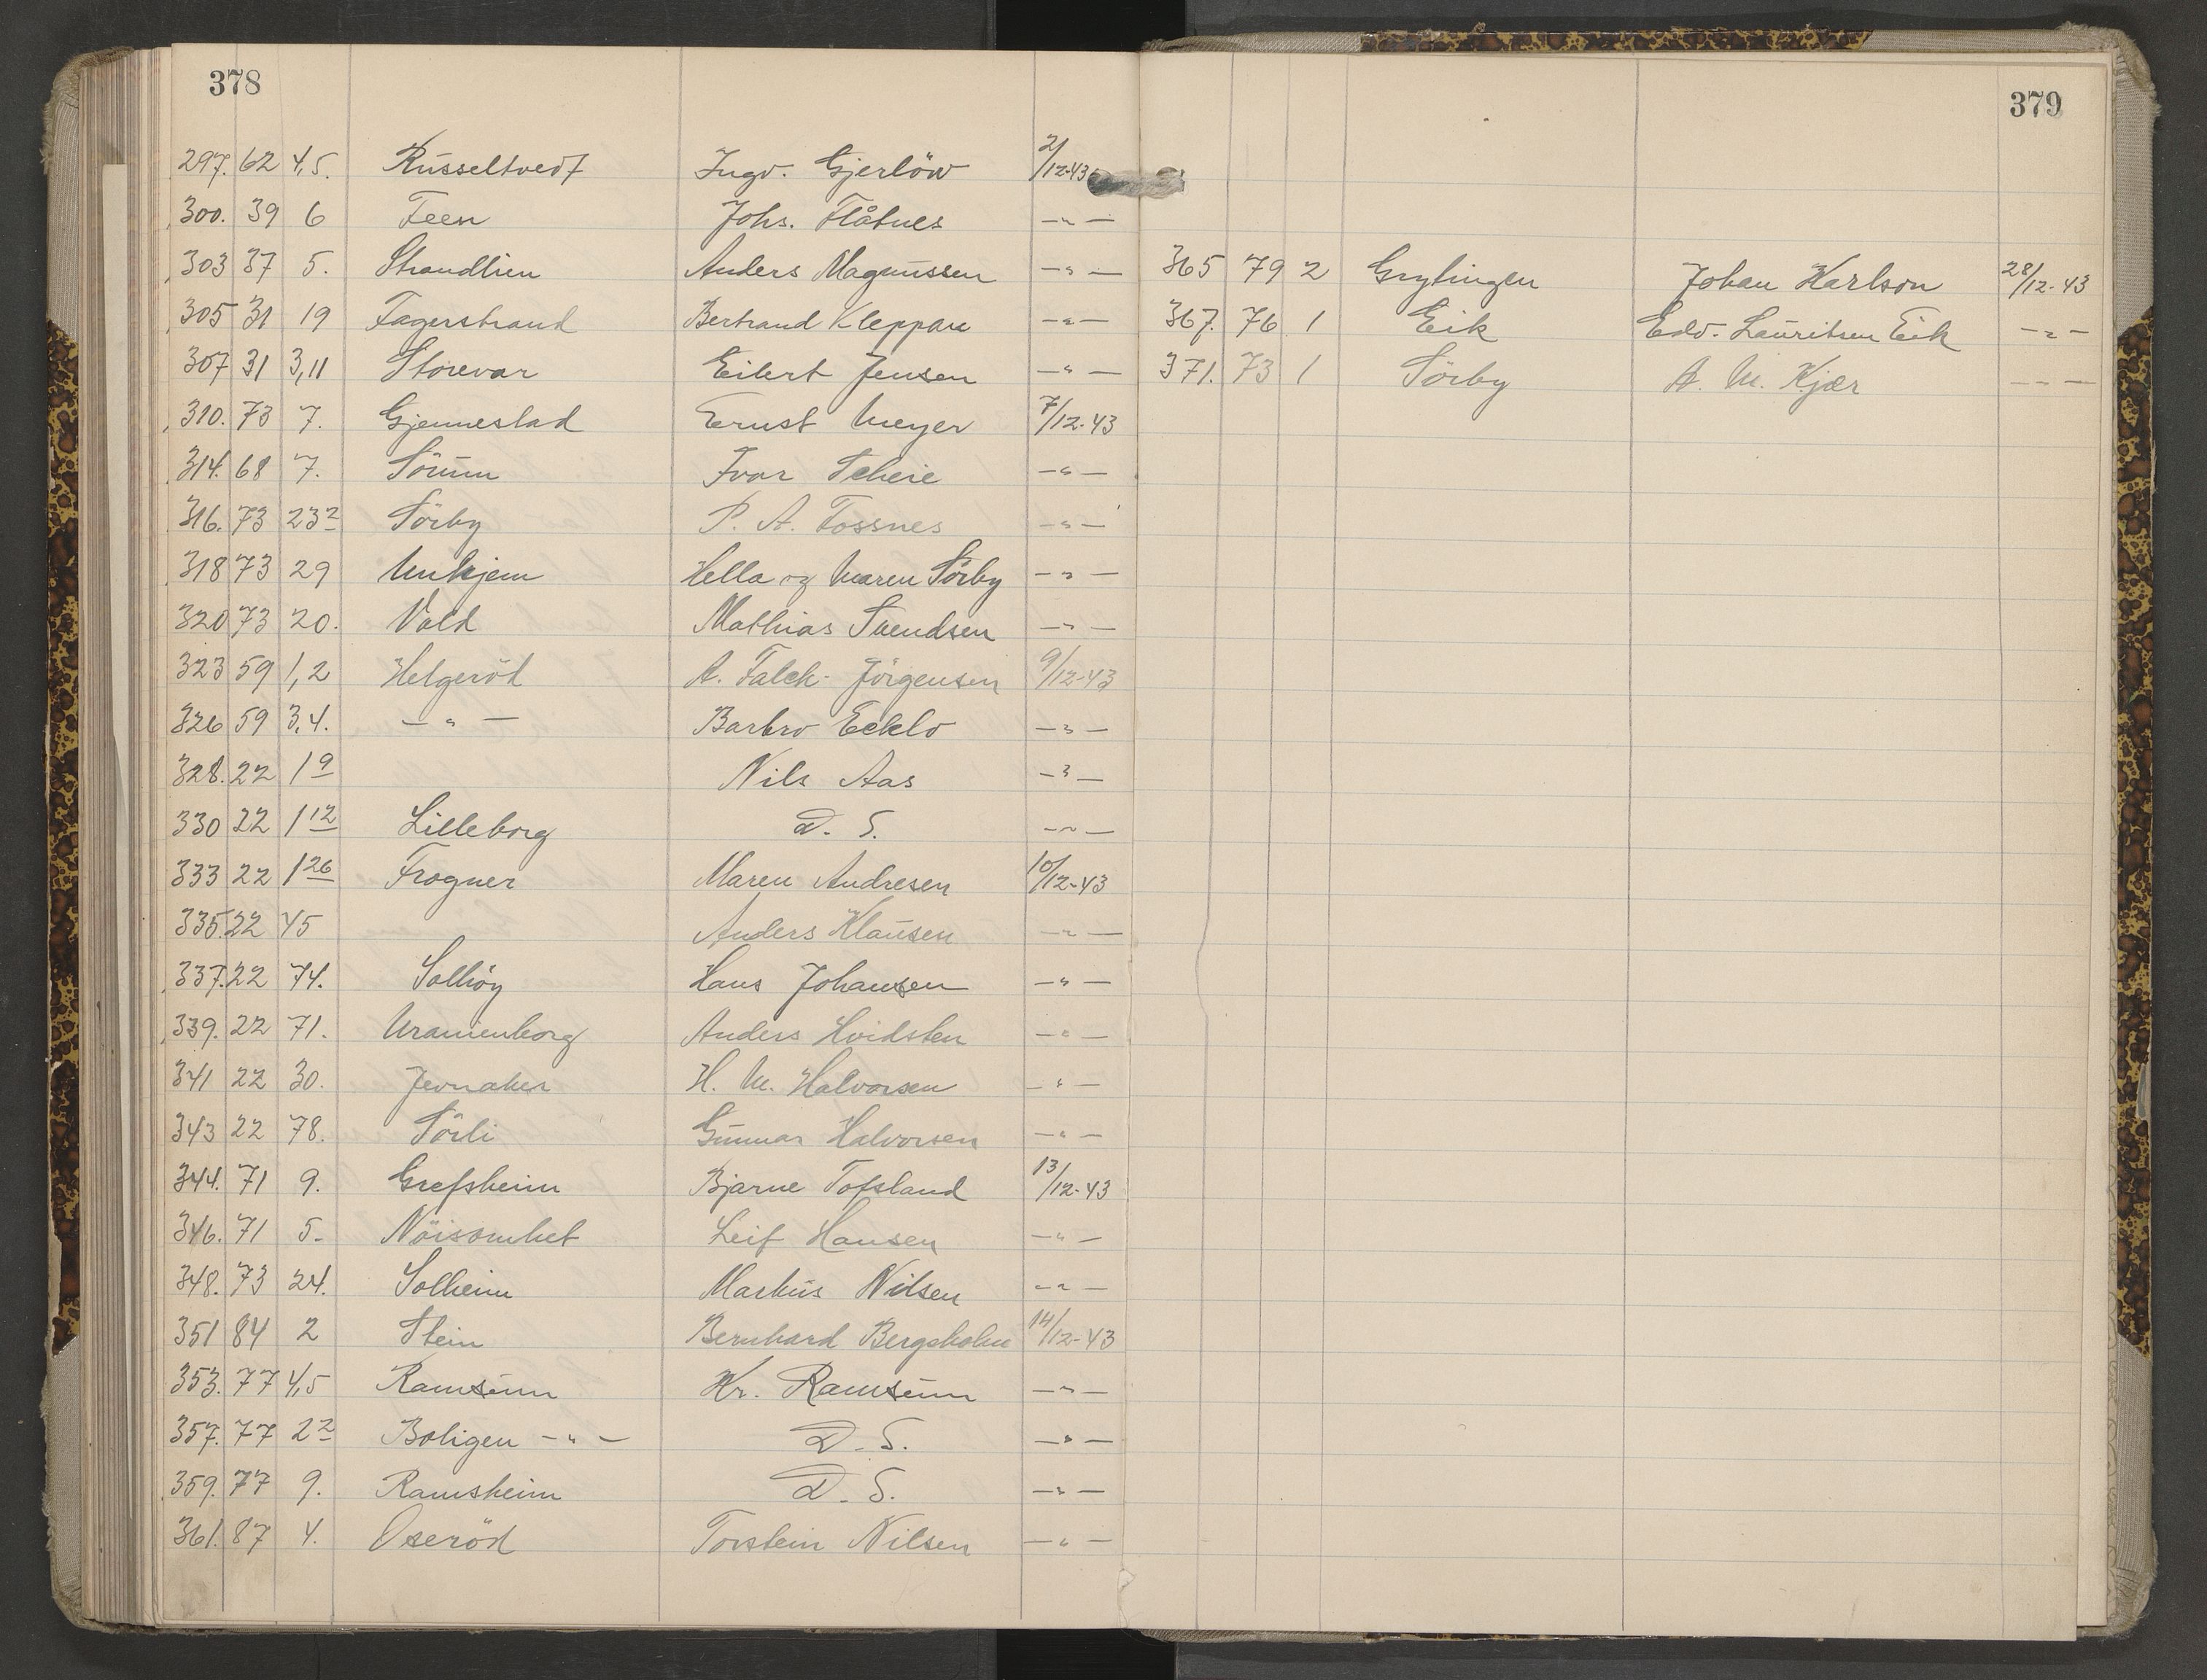 378
297. 62 4,5. Russeltvedt Ingv. Gjerlöw 2/12-43
300. 39 6 Feen Johs. Flåtnes — " —
303 37 5. Strandlien Anders Magnussen — " —
305 31 19 Fagerstrand Bertrand Kleppan — " —
307 31 3,11 Storevar Eilert Jensen — " —
310. 73 7. Gjennestad Ernst Meyer 7/12-43
314. 68 7. Sörum Ivar Scheie — " —
316. 73 23 2 Sörby P. A. Fossnes — " —
318 73 29 Unkjem Hella og Maren Sörby — " —
320 73 20. Vold Mathias Svendsen — " —
323 59 1,2 Helgeröd A. Falck-Jörgensen 9/12-43
326 59 3,4. — " — Barbro Ecklo — " —
328. 22 1 9 Nils Aas — " —
330 22 1 12 Lilleborg D. S. — " —
333 22 1 26 Frogner Maren Andresen 10/12-43
335. 22 45 Anders Klausen — " —
337. 22 74. Solhöy Hans Johansen — " —
339. 22 71. Uranienborg Anders Hvidsten — " —
341 22 30. Jevnaker H. M. Halvorsen — " —
343 22 78. Sörli Gunnar Halvorsen — " —
344. 71 9. Grefsheim Bjarne Tofsland 13/12-43
346. 71 5. Nöisomhet Leif Hansen — " —
348. 73 24. Solheim Markus Nilsen — " —
351 84 2 Stein Bernhard Bergsholm 14/12-43
353. 77 4,5 Ramsum Kr. Ramsum — " —
357. 77 2 2 Boligen — " — D. S. — " —
359. 77 9. Ramsheim D. S. — " —
361. 87 4. Oseröd Torstein Nilsen — " —
379
365 79 2 Grytingen Johan Karlson 28/12-43
367. 76 1 Eik Edv. Lauritsen Eik — " —
371. 73 1 Sörby A. M. Kjær — " —